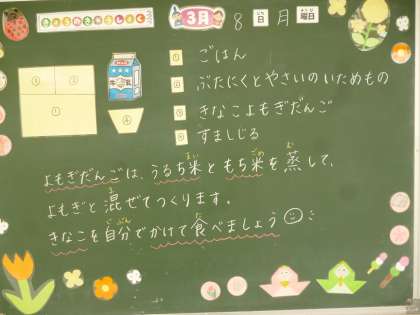 きょうのきゅうしょく 3月 8日 月曜日
① ごはん
② ぶたにくとやさいのいためもの
③ きなこよもぎだんご
④ すましじる
③ ②
①
④
牛乳
よもぎだんごは、うるち米ともち米を蒸して、
よもぎと混ぜてつくります。
きなこを自分でかけて食べましょう